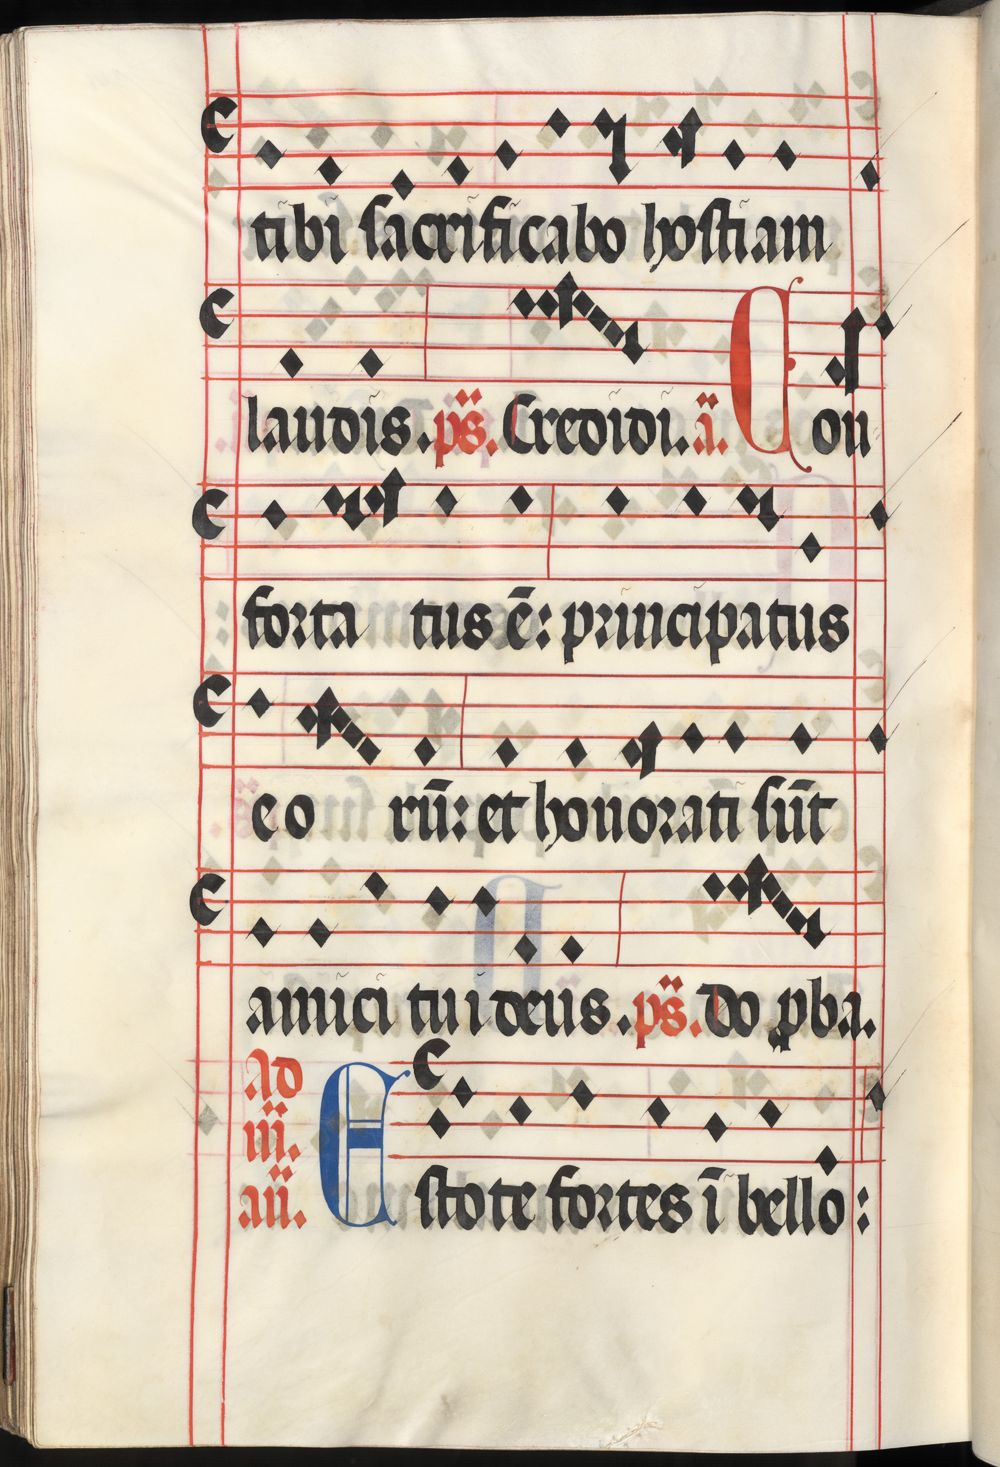 tibi sacrificabo hostiam
laudis. ps. Credidi. a. Con
forta tus ē: principatus
e o rū: et honorati sūt
amici tui deus. ps. Do pba.
Ad
iii.
an. Estote fortes ī bello: